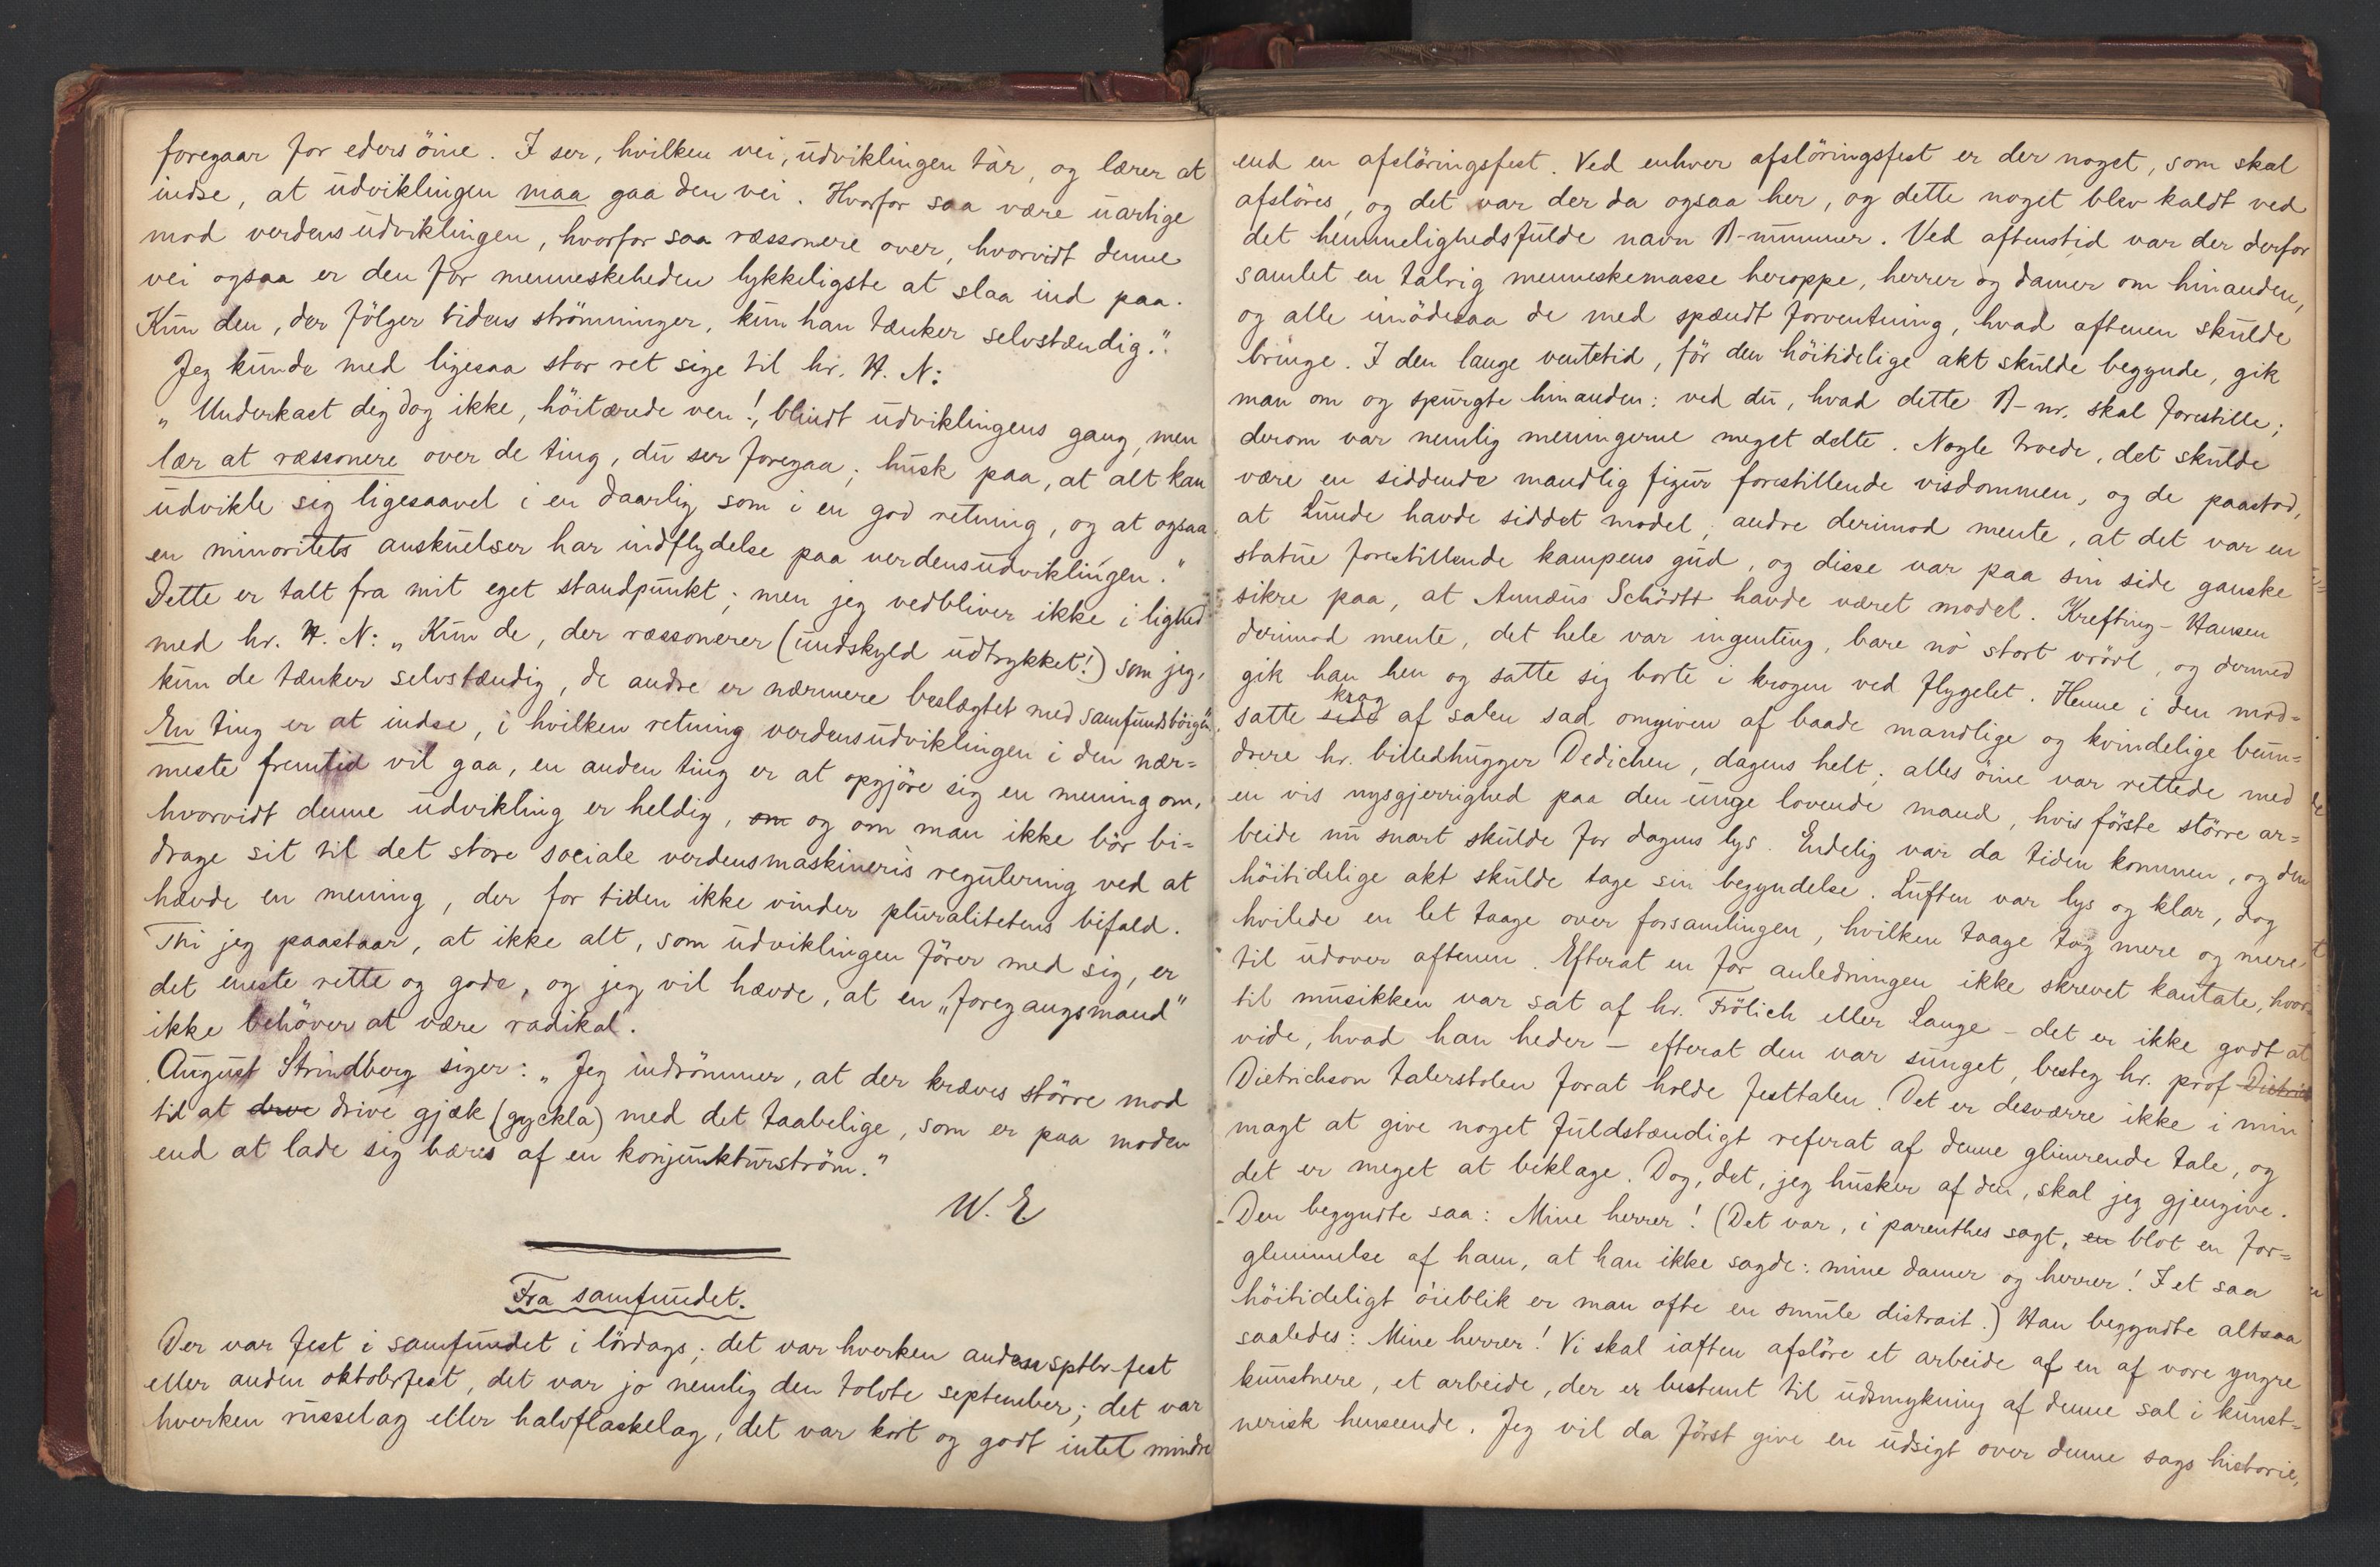 foregaar for eders öine. I ser, hvilken vei, udviklingen tàr, og lærer at
indse, at udviklingen maa gaa den vei. Hvorfor saa være uartige
mod verdensudviklingen, hvorfor saa ræssonere over, hvorvidt denne
vei ogsaa er den for menneskeheden lykkeligste at slaa ind paa.
Kun den, der fölger tidens strömninger, kun han tænker selvstændig.".
Jeg kunde med ligesaa stor ret sige til hr. H. N:
„Underkast dig dog ikke, höitærede ven!, blindt udviklingens gang, men
lær at ræssonere over de ting, du ser foregaa; husk paa, at alt kan
udvikle sig ligesaavel i en daarlig som i en god retning, og at ogsaa
en minoritets anskuelser har indflydelse paa verdensudviklingen."
Dette er talt fra mit eget standpunkt; men jeg vedbliver ikke i lighed
med hr. H. N: „Kun de, der ræssonerer (undskyld udtrykket!) som jeg,
kun de tænker selvstændig, de andre er nærmere beslægtet med samfundsböigen".
En ting er at indse, i hvilken retning verdensudviklingen i den nær=
meste fremtid vil gaa, en anden ting er at opgjöre sig en mening om,
hvorvidt denne udvikling er heldig, om og om man ikke bör bi=
drage sit til det store sociale verdensmaskineris regulering ved at
hævde en mening, der for tiden ikke vinder pluralitetens bifald.
Thi jeg paastaar, at ikke alt, som udviklingen förer med sig, er
det eneste rette og gode, og jeg vil hævde, at en „foregangsmand"
ikke behöver at være radikal.
August Strindberg siger: „Jeg indrömmer, at der kræves större mod
til at drive drive gjæk (gyckla) med det taabelige, som er paa moden
end at lade sig bæres af en konjunkturström."
W. E.
Fra samfundet.
Der var fest i samfundet i lördags; det var hverken anden sptbr-fest
eller anden oktoberfest, det var jo nemlig den tolvte september; det var
hverken russelag eller halvflaskelag, det var kort og godt intet mindre
end en afslöringsfest. Ved enhver afslöringsfest er der noget, som skal
afslöres, og det var der da ogsaa her, og dette noget blev kaldt ved
det hemmelighedsfulde navn B-nummer. Ved aftenstid var der derfor
samlet en talrig menneskemasse heroppe, herrer og damer om hinanden,
og alle imödesaa de med spændt forventning, hvad aftenen skulde
bringe. I den lange ventetid, för den höitidelige akt skulde begynde, gik
man om og spurgte hinanden: ved du, hvad dette B-nr. skal forestille;
derom var nemlig meningerne meget delte. Nogle troede, det skulde
være en siddende mandlig figur forestillende visdommen, og de paastod,
at Lunde havde siddet model; andre derimod mente, at det var en
statue forestillende kampens gud, og disse var paa sin side ganske
sikre paa, at Annæus Schödtt havde været model. Krefting-Hansen
derimod mente, det hele var ingenting, bare nó stort vrövl, og dermed
gik han hen og satte sig borte i krogen ved flygelet. Henne i den mod=
krog
satte side af salen sad omgiven af baade mandlige og kvindelige beun=
drere hr. billedhugger Dedichen, dagens helt; alles öine var rettede med
en vis nysgjerrighed paa den unge lovende mand, hvis förste större ar=
beide nu snart skulde for dagens lys. Endelig var da tiden kommen, og den
höitidelige akt skulde tage sin begyndelse. Luften var lys og klar, dog
hvilede en let taage over forsamlingen, hvilken taage tog mere og mere
til udover aftenen. Efterat en for anledningen ikke skrevet kantate, hvor=
til musikken var sat af hr. Frölich eller Lange – det er ikke godt at
vide, hvad han heder – efterat den var sunget, besteg hr. prof Dietrich
Dietrichson talerstolen forat holde festtalen. Det er desværre ikke i min
magt at give noget fuldstændigt referat af denne glimrende tale, og
det er meget at beklage. Dog, det, jeg husker af den, skal jeg gjengive.
Den begyndte saa: Mine herrer! (Det var, i parenthes sagt, en blot en for=
glemmelse af ham, at han ikke sagde: mine damer og herrer! I et saa
höitideligt öieblik er man ofte en smule distrait.) Han begyndte altsaa
saaledes: Mine herrer! Vi skal iaften afslöre et arbeide af en af vore yngre
kunstnere, et arbeide, der er bestemt til udsmykning af denne sal i kunst=
nerisk henseende. Jeg vil da först give en udsigt over denne sags historie,